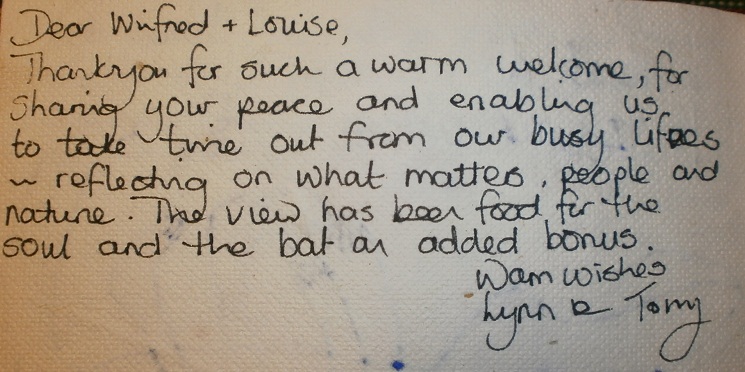 Dear Winifred + Louise,
Thankyou for such a warm welcome, for
sharing your peace and enabling us
to take time out from our busy lifes
~ reflecting on what matters, people and
nature. The view has been food for the
soul and the bat an added bonus.
Warm wishes
Lynn & Tony